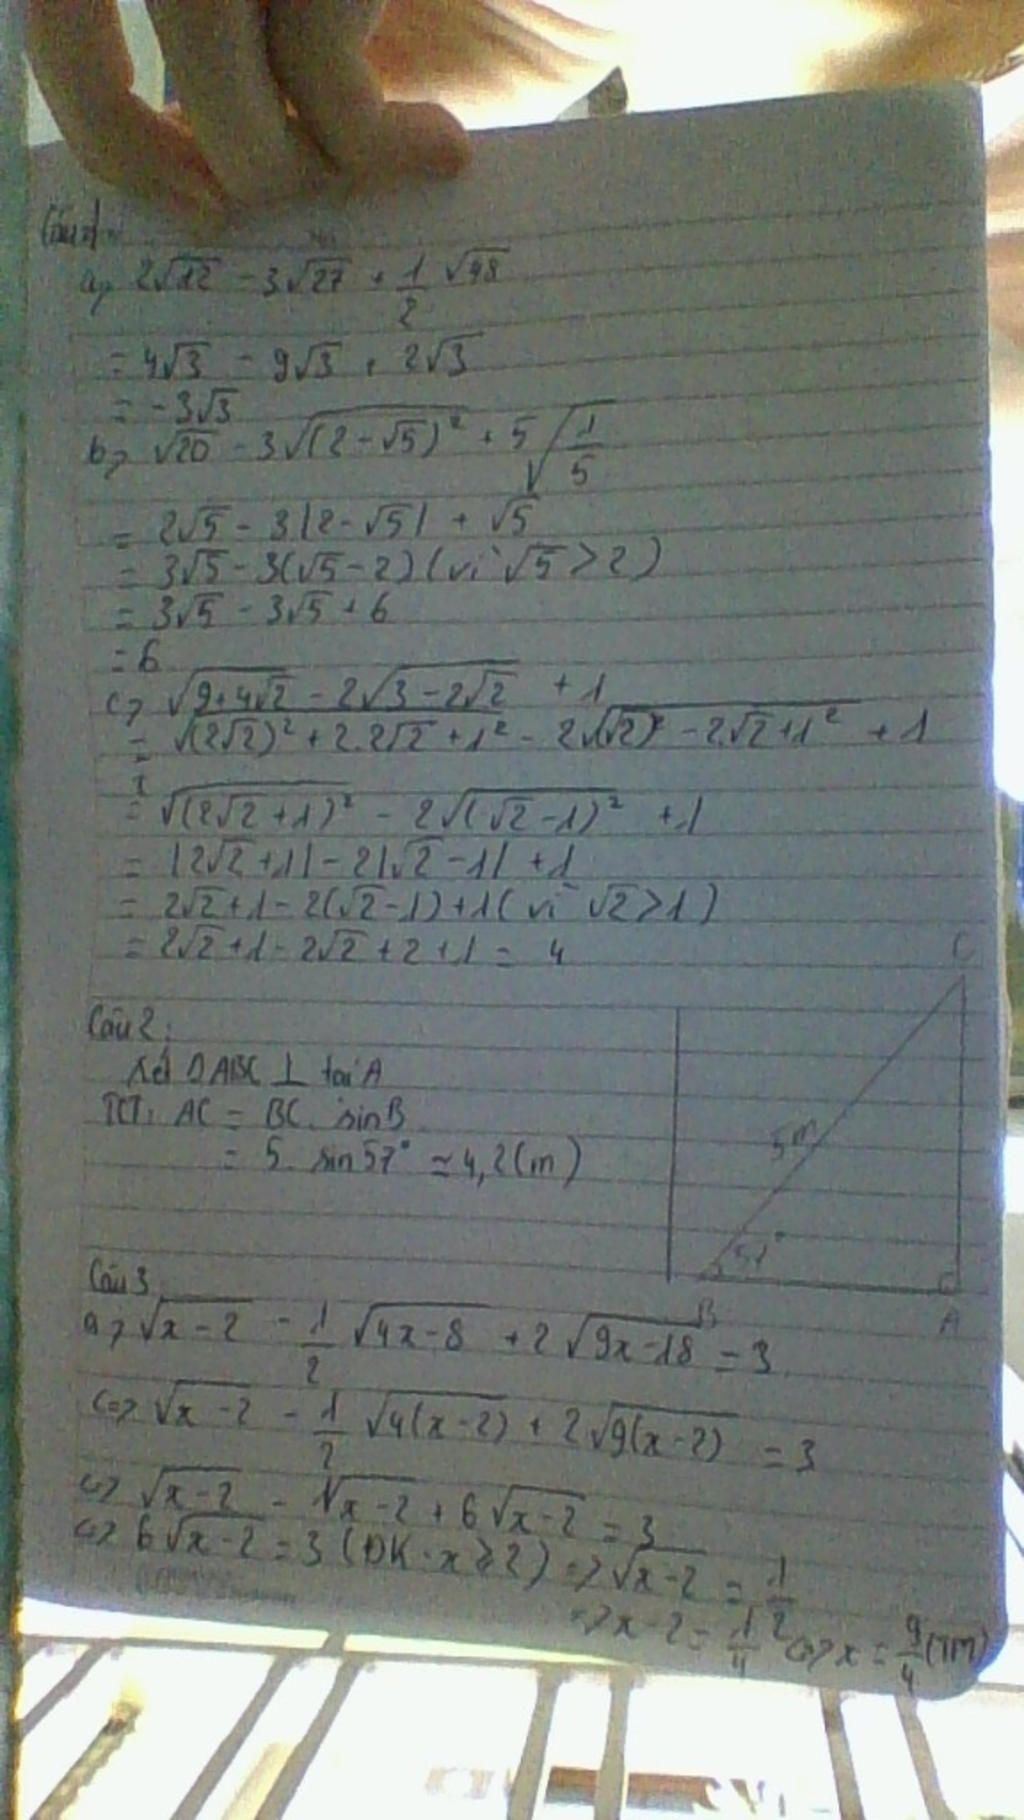 Câu 1:
a, 2√12 - 3√27 + 1/2 √48
= 4√3 - 9√3 + 2√3
= -3√3
b, √20 - 3√(2-√5)² + 5√1/5
= 2√5 - 3|2-√5| + √5
= 3√5 - 3(√5-2) (vì √5 > 2)
= 3√5 - 3√5 + 6
= 6
c, √9+4√2 - 2√3-2√2 + 1
= √(2√2)² + 2.2√2 + 1² - 2√(√2)² - 2.√2 + 1² + 1
= √(2√2+1)² - 2√(√2-1)² + 1
= |2√2+1| - 2|√2-1| + 1
= 2√2+1 - 2(√2-1)+1 (vì √2>1)
= 2√2+1-2√2+2+1 = 4
C
Câu 2:
Xét ΔABC ⊥ tại A
TCT: AC = BC. sinB
= 5. sin57° ≃ 4,2(m)
5m
57°
B
A
Câu 3
a, √x-2 - 1/2 √4x-8 + 2√9x-18 = 3
<=> √x-2 - 1/2 √4(x-2) + 2√9(x-2) = 3
<=> √x-2 - √x-2 + 6√x-2 = 3
<=> 6√x-2 = 3 (ĐK: x≥2) => √x-2 = 1/2
=> x-2 = 1/4 <=> x = 9/4 (TM)